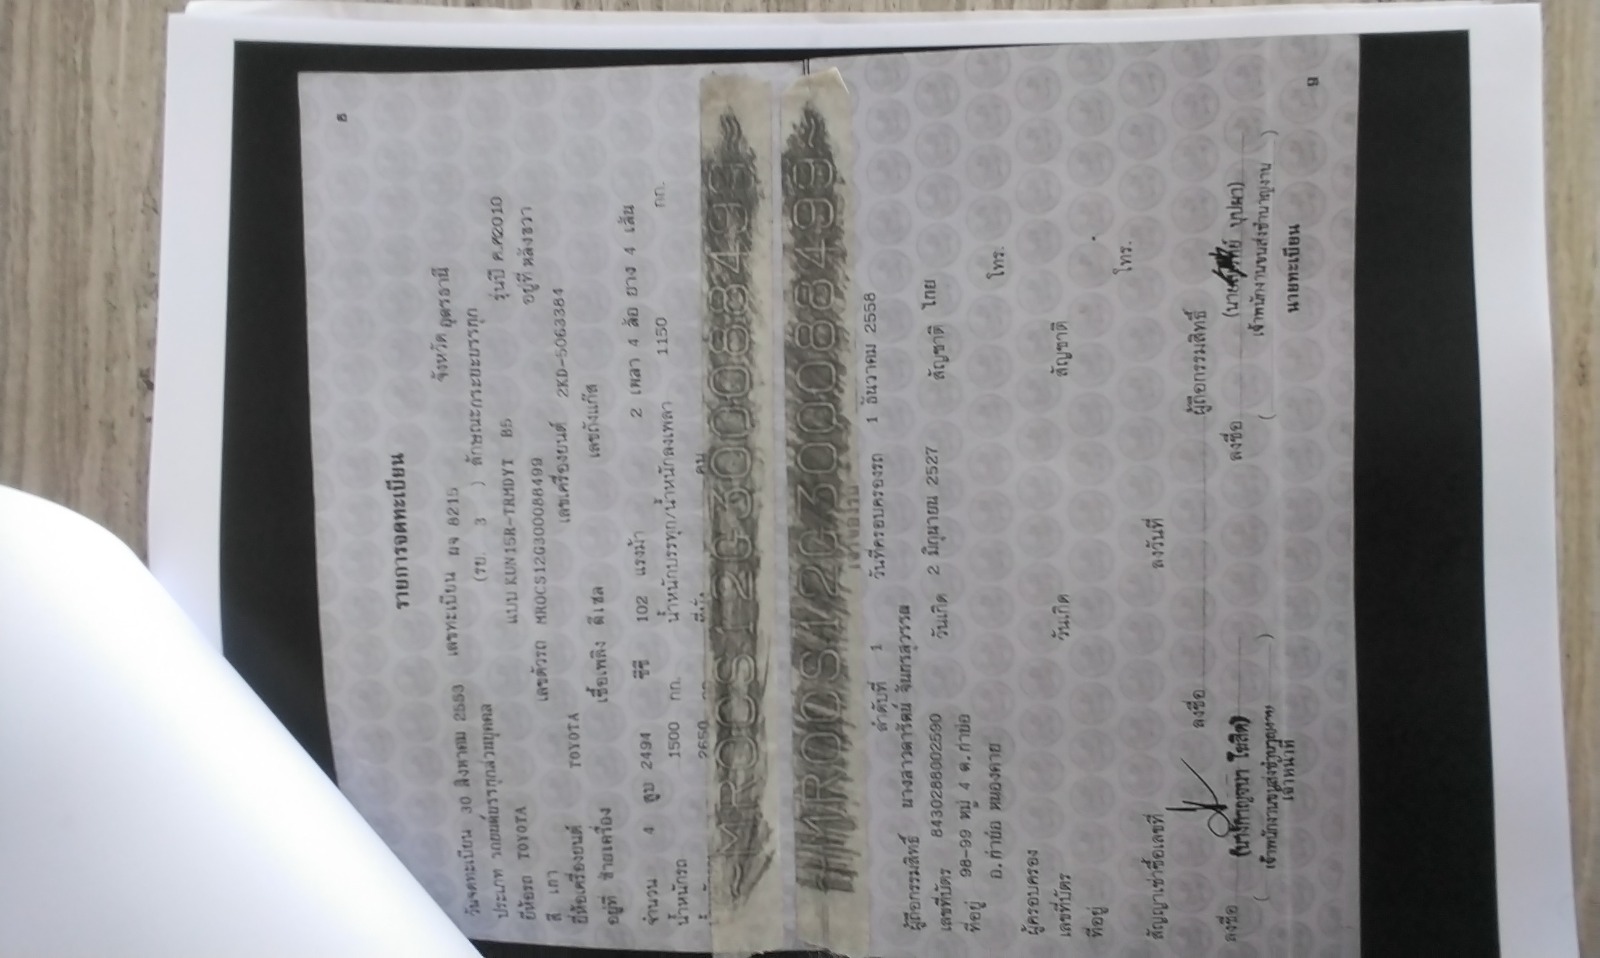 ๘
รายการจดทะเบียน
วันจดทะเบียน 30 สิงหาคม 2553 เลขทะเบียน ผจ 8215 จังหวัด อุดรธานี
ประเภท รถยนต์บรรทุกส่วนบุคคล (รย. 3 ) ลักษณะกระบะบรรทุก
ยี่ห้อรถ TOYOTA แบบ KUN15R-TRMDYT B5 รุ่นปี ค.ศ2010
สี เทา เลขตัวรถ MROCS12G300088499 อยู่ที่ หลังขวา
ยี่ห้อเครื่องยนต์ TOYOTA เลขเครื่องยนต์ 2KD-5063384
อยู่ที่ ซ้ายเครื่อง เชื้อเพลิง ดีเซล เลขถังแก๊ส
จำนวน 4 สูบ 2494 ซีซี 102 แรงม้า 2 เพลา 4 ล้อ ยาง 4 เส้น
น้ำหนักรถ 1500 กก. น้ำหนักบรรทุก/น้ำหนักลงเพลา 1150 กก.
2650
MROCS12G300088499
MROCS12G300088499
ลำดับที่ 1 วันที่ครอบครองรถ 1 ธันวาคม 2558
ผู้ถือกรรมสิทธิ์ นางสาวดารัตน์ จันทรสุวรรณ
เลขที่บัตร 8430288002590 วันเกิด 2 มิถุนายน 2527 สัญชาติ ไทย
ที่อยู่ 98-99 หมู่ 4 ต.ท่าบ่อ
อ.ท่าบ่อ หนองคาย โทร.
ผู้ครอบครอง
เลขที่บัตร วันเกิด สัญชาติ
ที่อยู่ โทร.
สัญญาเช่าซื้อเลขที่ ลงวันที่
ลงชื่อ ผู้ถือกรรมสิทธิ์
ลงชื่อ (นางกาญจนา โฆสิต) ลงชื่อ (นาย บุปผา)
เจ้าพนักงานขนส่งชำนาญงาน เจ้าพนักงานขนส่งชำนาญงาน
เจ้าหน้าที่ นายทะเบียน
๙